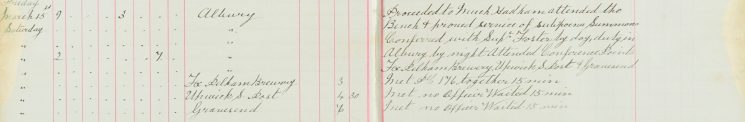 Friday
March 15th 9 " " 3 " " Albury Proceeded to Much Hadham attended the
Bench & proved service of subpoena Summons
Saturday " Conferred with Supt Foster by day duty in
" Albury by night Attended Conference Points
2 " " 7 " " Fox Pelham Brewery, Upwick S. Post & Gravesend
Fox Pelham Brewery 3 Met P.C. 176 together 15 min
Upwick S. Post 4 30 Met no Officer Waited 15 min
Gravesend 6 Met no Officer Waited 15 min